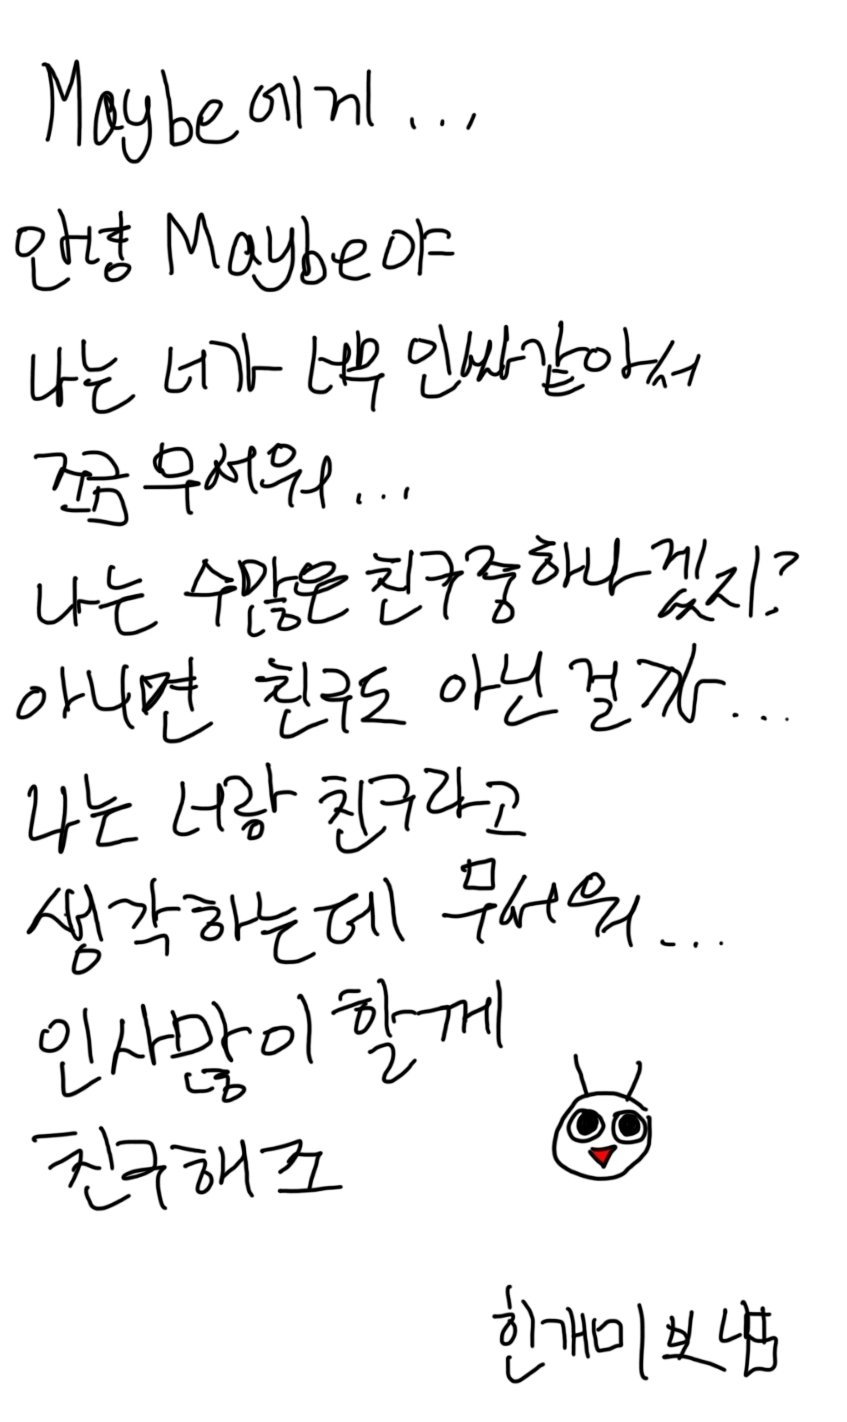 Maybe에게...
안녕 Maybe야
나는 너가 너무 인싸같아서
쪼금 무서워...
나는 수많은 친구중 하나겠지?
아니면 친구도 아닌걸까...
나는 너랑 친구라고
생각하는데 무서워...
인사많이 할게
친구해조
흰개미 보냄